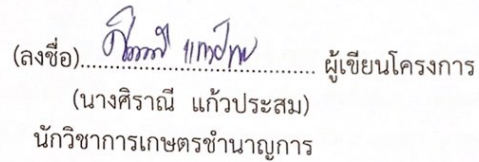 (ลงชื่อ)........................................ ผู้เขียนโครงการ
(นางศิราณี แก้วประสม)
นักวิชาการเกษตรชำนาญการ